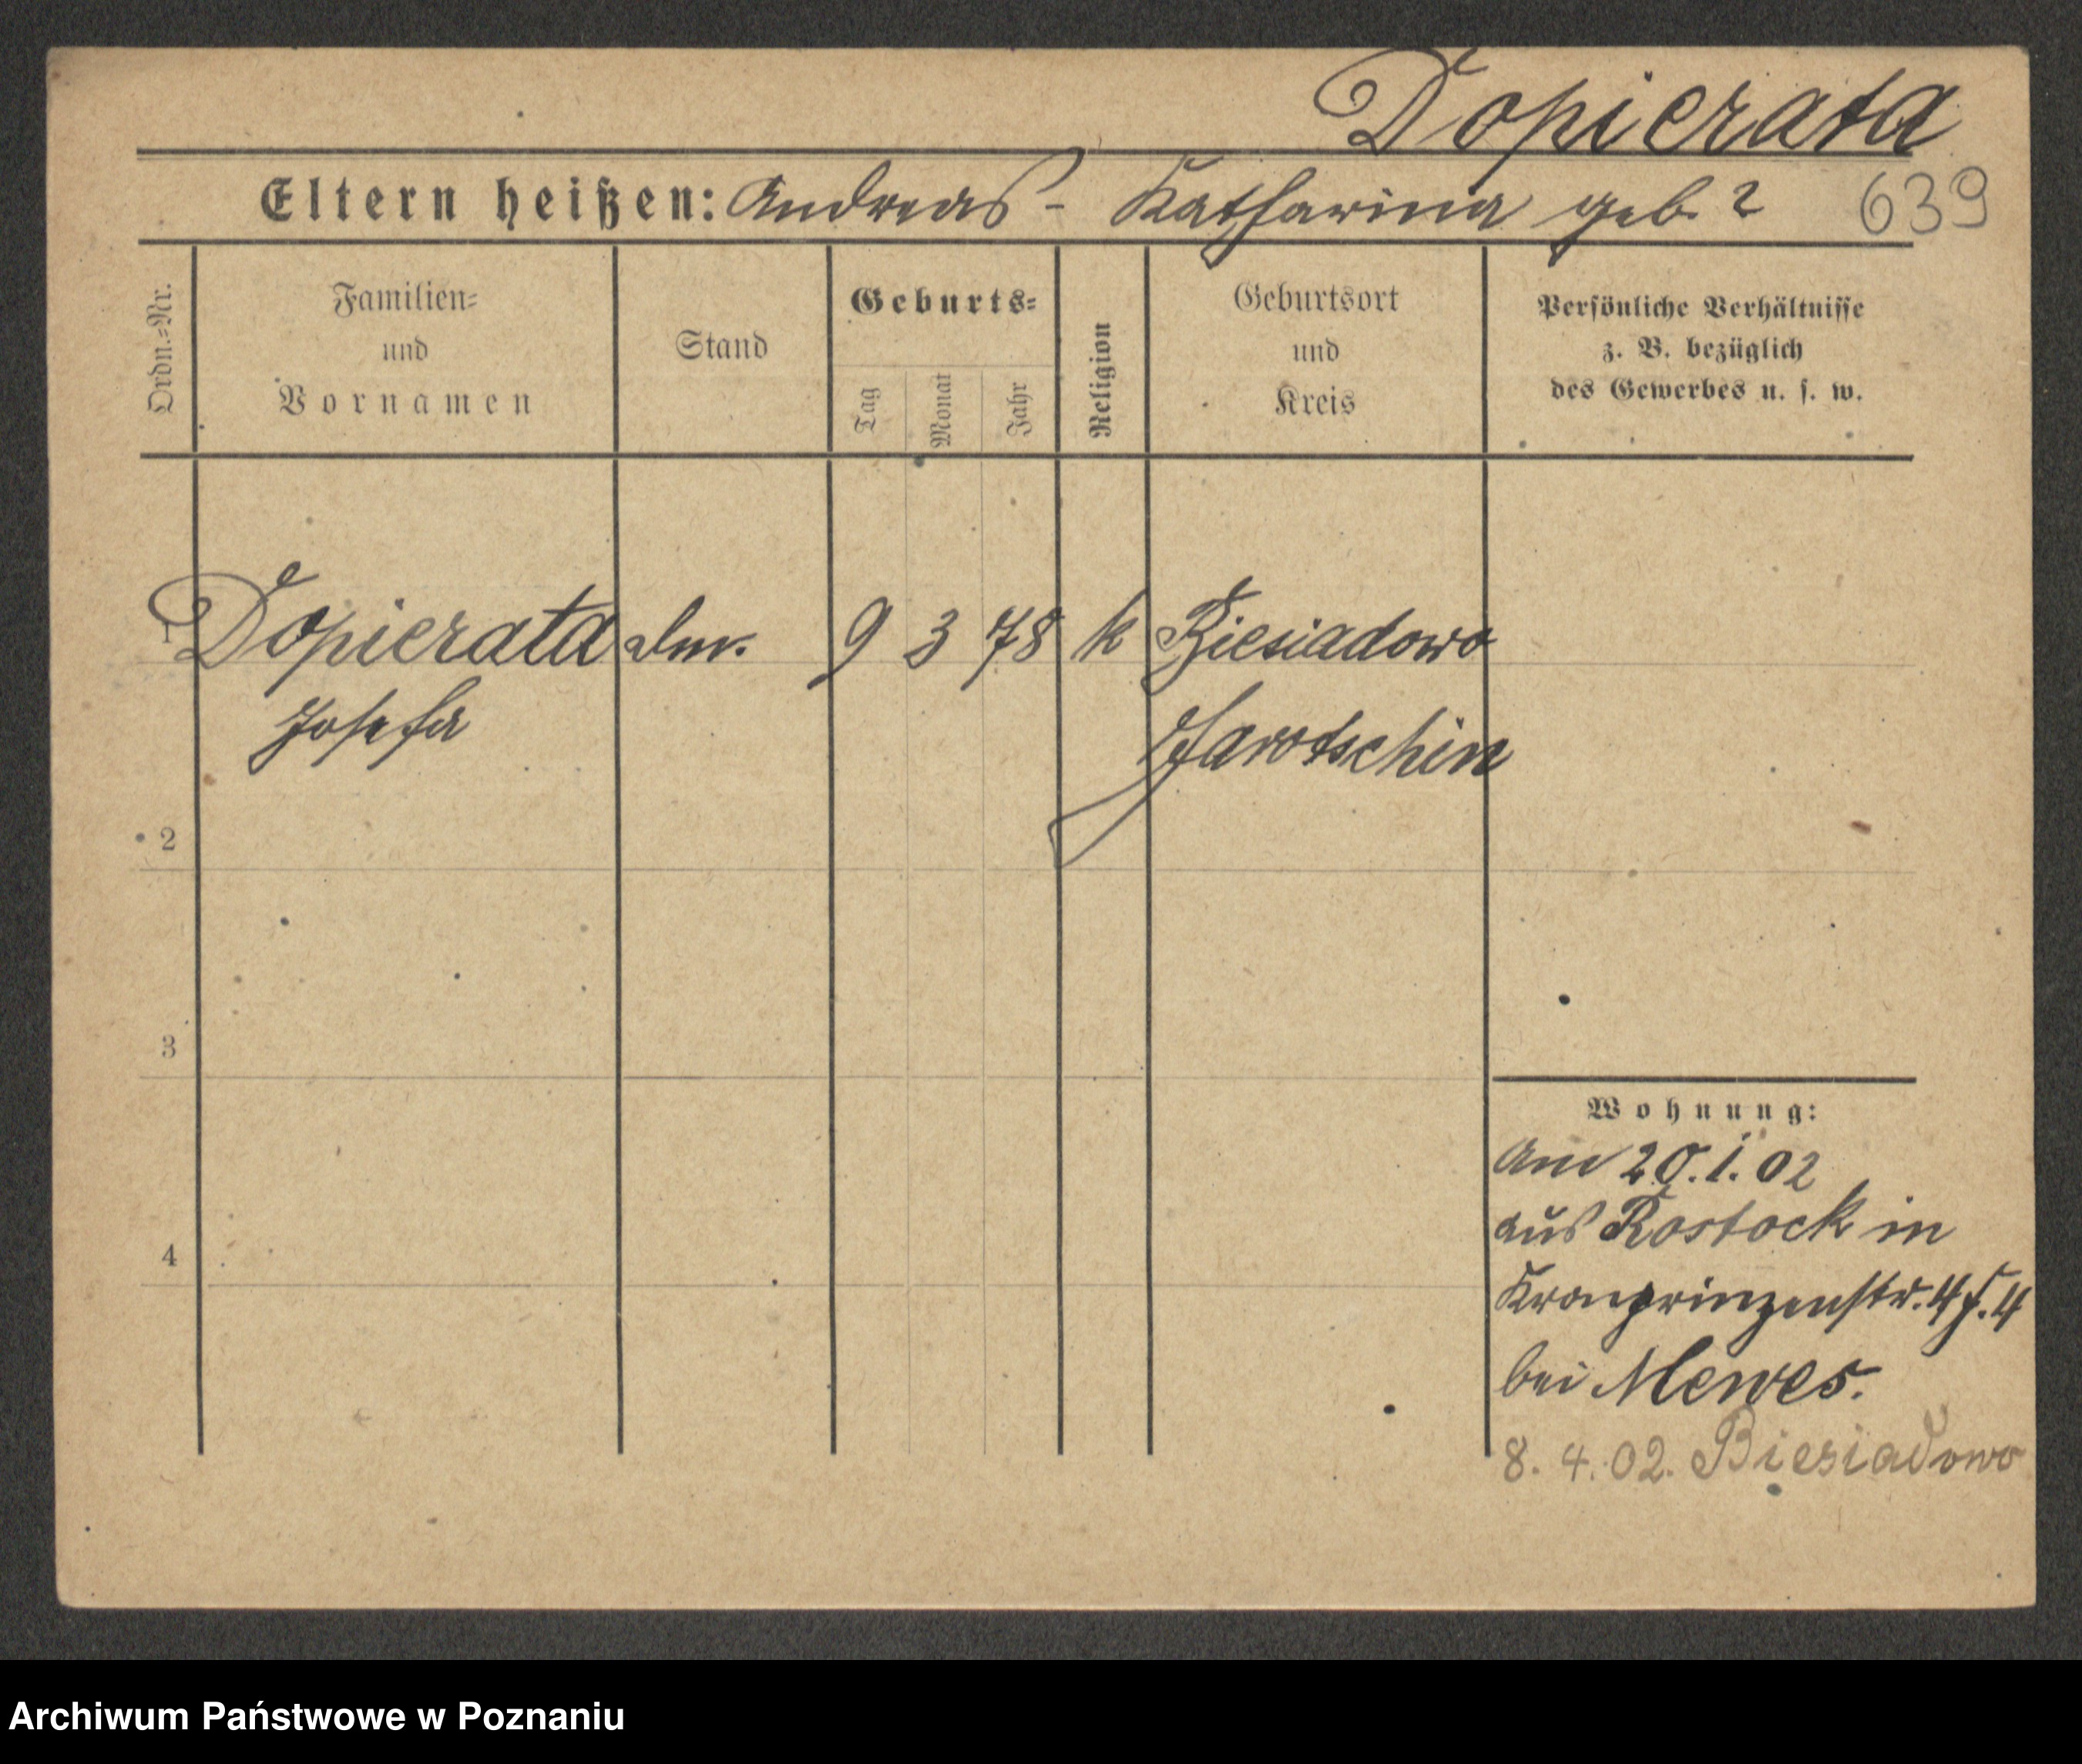 Dopierata
Eltern heißen: Andreas - Katharina geb. ? 639
Ordn.=Nr.
Familien=
und
Vornamen
Stand
Geburts=
Tag
Monat
Jahr
Religion
Geburtsort
und
Kreis
Persönliche Verhältnisse
z. B. bezüglich
des Gewerbes u. s. w.
1 Dopierata 9 3 78 k Biesiadowo
Josefa Jarotschin
2
3
4
Wohnung:
Am 20.1.02
aus Rostock in
Kronprinzenstr. 4
bei Mewes.
8. 4. 02. Biesiadowo
Archiwum Państwowe w Poznaniu